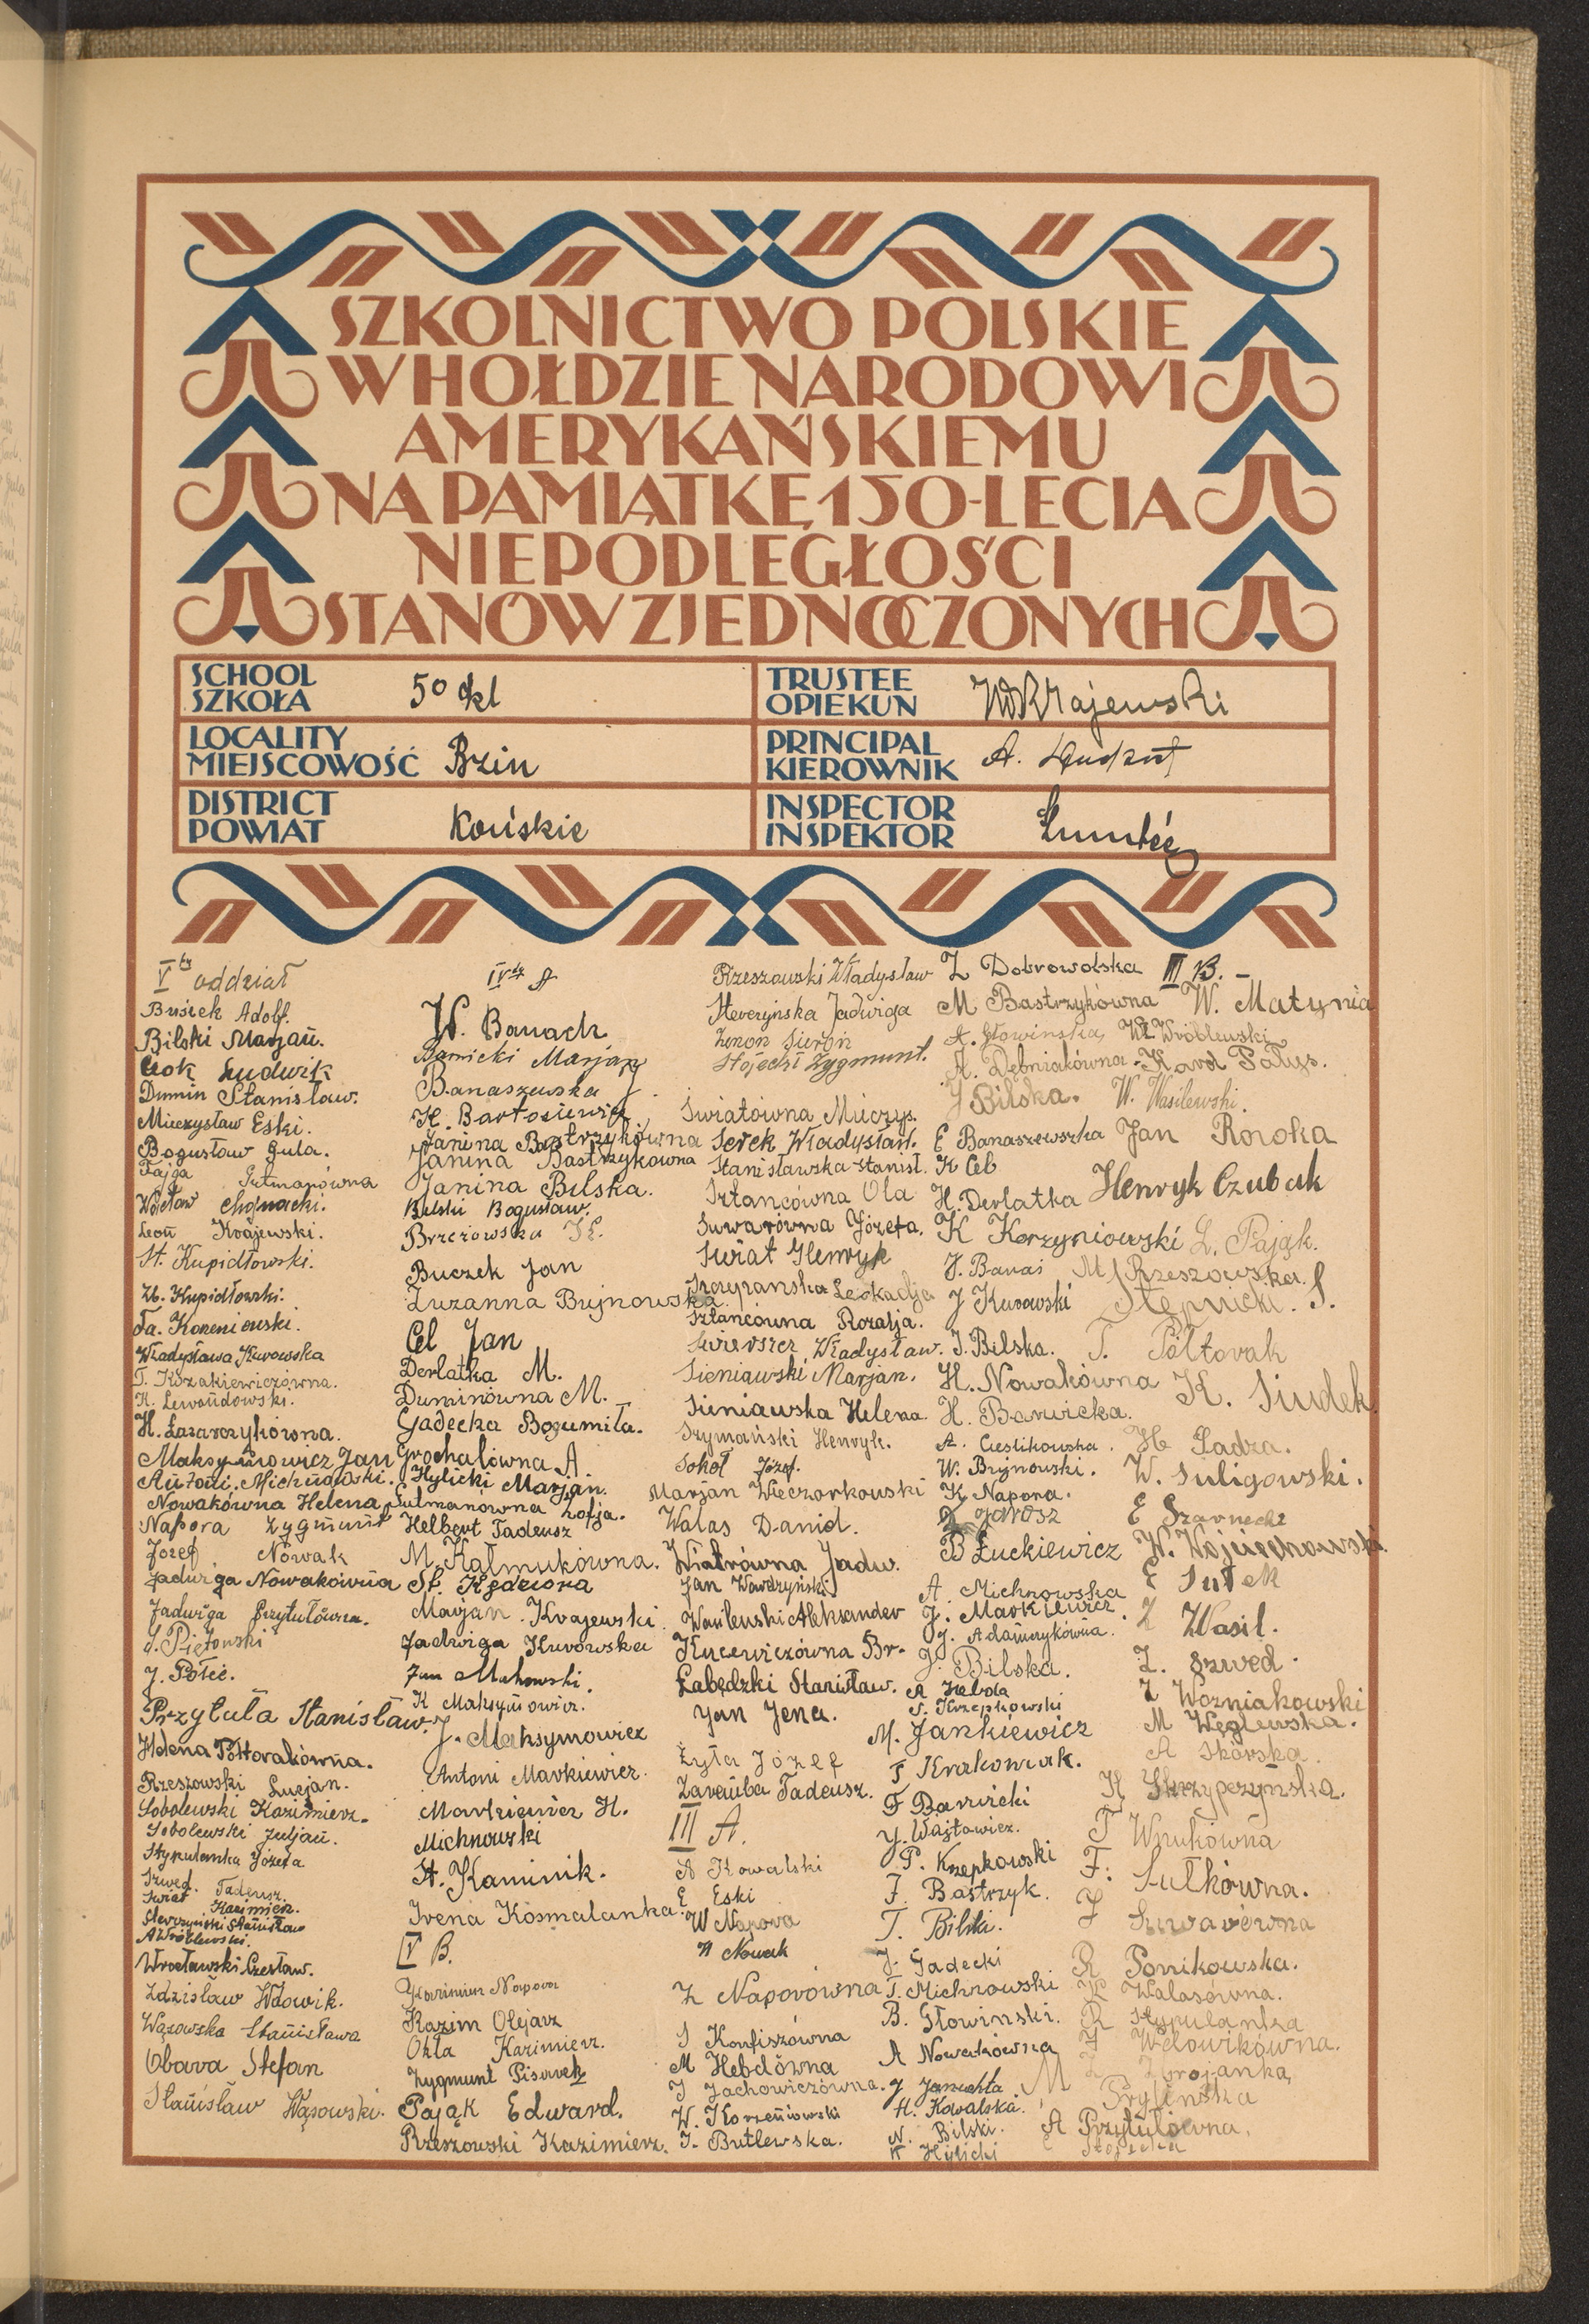 SZKOLNICTWO POLSKIE
W HOŁDZIE NARODOWI
AMERYKAŃSKIEMU
NA PAMIĄTKĘ 150-LECIA
NIEPODLEGŁOŚCI
STANÓW ZJEDNOCZONYCH
SCHOOL
SZKOŁA
50 kl
TRUSTEE
OPIEKUN
WKrajewski
LOCALITY
MIEJSCOWOŚĆ
Bzin
PRINCIPAL
KIEROWNIK
A.
DISTRICT
POWIAT
Końskie
INSPECTOR
INSPEKTOR
V ty oddział
Busiek Adolf.
Bilski Marjan.
Ciok Ludwik
Dumin Stanisław.
Mieczysław Eski.
Bogusław Gula.
Fajga Gutmanówna
Wacław Chojnacki.
Leon Krajewski.
St. Kupidłowski.
Zb. Kupidłowski.
Ta. Korzeniewski.
Władysława Kurowska
T. Kozakiewiczówna.
K. Lewandowski.
H. Łazarczykówna.
Maksymowicz Jan
Antoni Michnowski.
Nowakówna Helena
Napora Zygmunt
Józef Nowak
Jadwiga Nowakówna
Jadwiga Przytułówna.
J. Piętowski
J. Połeć.
Przytuła Stanisław.
Helena Półtorakówna.
Rzeszowski Lucjan.
Sobolewski Kazimierz.
Sobolewski Juljan.
Stypulanka Józefa
Szwed. Tadeusz.
Świat Kazimierz.
Sterczyński Stanisław
A Wróblewski.
Wrocławski Czesław.
Zdzisław Wdowik.
Wąsowska Stanisława
Obara Stefan
Stanisław Wąsowski.
IV ty A
W. Banach
Barnicki Marjan
Banaszewska J
H. Bartosiewicz
Janina Bastrzykówna
Janina Bastrzykówna
Janina Bilska.
Bilski Bogusław.
Brzezowska K.
Buczek Jan
Zuzanna Bujnowska
Cel Jan
Derlatka M.
Duminówna M.
Gadecka Bogumiła.
Grochalówna A.
Hylicki Marjan.
Gutmanówna Zofja.
Helbert Tadeusz
M. Kałmukówna.
St. Kędziora
Marjan Krajewski
Jadwiga Kurowska
Jan Makowski.
K Maksymowicz.
J. Maksymowicz
Antoni Markiewicz.
Markiewicz H.
Michnowski
St. Kaminik.
Irena Kosmalanka.
IV B.
Kazimierz Napora
Kazim Olejarz
Okła Kazimierz.
Zygmunt Pisarek
Pająk Edward.
Rzeszowski Kazimierz.
Rzeszowski Władysław
Sterczyńska Jadwiga
Zenon Sieroń
Stojecki Zygmunt.
Światówna Mieczys.
Serek Władysław.
Stanisławska Stanisł.
Sztancówna Ola
Suwarówna Józefa.
Świat Henryk
Szczepańska Leokadja
Sztancówna Rozalja.
Świerszcz Władysław.
Sieniawski Marjan.
Sieniawska Helena
Szymański Henryk.
Sokoł Józef.
Marjan Wieczorkowski
Walas Danid.
Wiatrówna Jadw.
Jan Wawrzyński
Wasilewski Aleksander
Kucewiczówna Br.
Łabędzki Stanisław.
Jan Jena.
Żyła Józef
Zaremba Tadeusz.
III A.
A Kowalski
E Eski
W Napora
N Nowak
Z Naporówna
S Konfiszówna
M Hebdówna
J Jachowiczówna.
W. Korzeniowski
J. Butlewska.
Z Dobrowolska
M Bastrzykówna
A. Głowinska,
A. Dębniakówna
J Bilska.
E Banaszewszka
K Cel
H. Derlatka
K Korzyniowski
J. Banaś
J Kurowski
J. Bilska.
H. Nowakówna
H. Barwicka.
A. Cieslikowska.
W. Bujnowski.
K. Napora.
J Jarosz
B Łuckiewicz
A. Michnowska
J. Markiewicz
J. Adamczykówna.
J. Bilska.
A Hebda
S. Krzepkowski
M. Jankiewicz
F Krakowiak.
F Barwicki
J. Wajtowicz.
P. Krzepkowski
F. Bastrzyk.
T. Bilski.
J. Gadecki
T. Michnowski
B. Głowinski.
A Nowakówna
J Januchta
H. Kowalska.
N. Bilski.
K Hylicki
III B.
W. Matynia
Wł Wróblewski
Karol Pałys.
W. Wasilewski.
Jan Rosoka
Henryk Czubak
L. Pająk.
M Rzeszowska.
Stępnicki. S.
T. Półtorak
K. Siudek
H Sadza.
W. Suligowski.
E Szarnecki
W. Wojciechowski
E Sułek
Z Wasil.
Z. Szwed.
Z Wozniakowski
M Węglewska.
A Skórska.
H Skrzypczyńska.
T Wnukówna
F. Sułkówna.
Z Suwarówna
R Ponikowska.
K Walasówna.
R Stypulanka
Z Wdowikówna.
Z Zbrojanka,
M Prylińska
A Przytułówna,